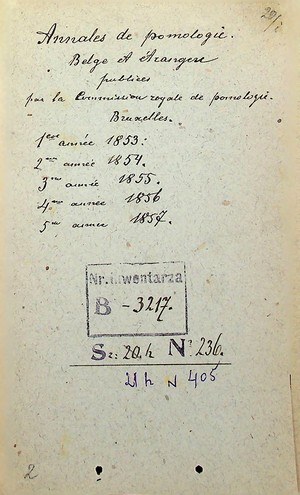 20/i
Annales de pomologie.
Belge et étrangère
publiées
par la Commission royale de pomologie.
Bruxelles.
1ère année 1853:
2me année 1854.
3me année 1855.
4me année 1856
5me année 1857.
Nr. inwentarza
B - 3217.
Sz: 20.h N° 236.
21 h N 405
2